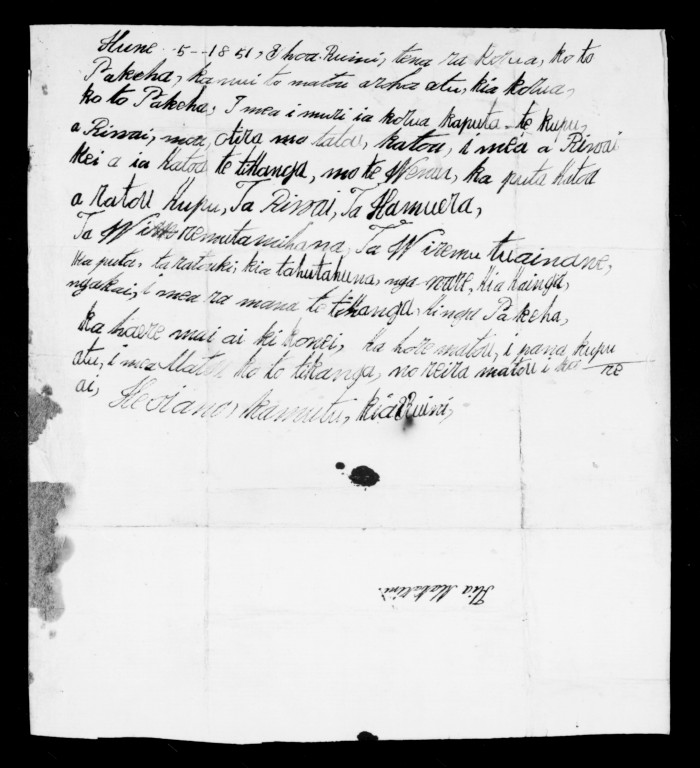 Hune . 5 - - 1851, E hoa Ruini, tena ra korua, ko to
Pakeha, ka nui to matou aroha atu, kia korua,
ko to Pakeha, I mea i muri ia korua kaputa te kupu,
a Riwai, moa, otira mo tatou, katoa, i mea a Riwai
kei a ia katoa te tikanga, mo te Wenua, ka puta katoa
a ratou kupu, Ta Riwai, Ta Hamuera,
Ta Wiremutamihana, Ta Wiremu tuainane,
ka puta, ta ratouki, kia tahutahuna, nga ware, kia kainga,
ngakai, i mea ra mana te tikanga, kinga Pakeha,
ka haere mai ai ki konei, ka hore matou, i pana, kupu
atu, i mea Matou ko to tikanga, no reira matou i ho
re
ai,
Heoiano, kamutu, kia Ruini,
Kia